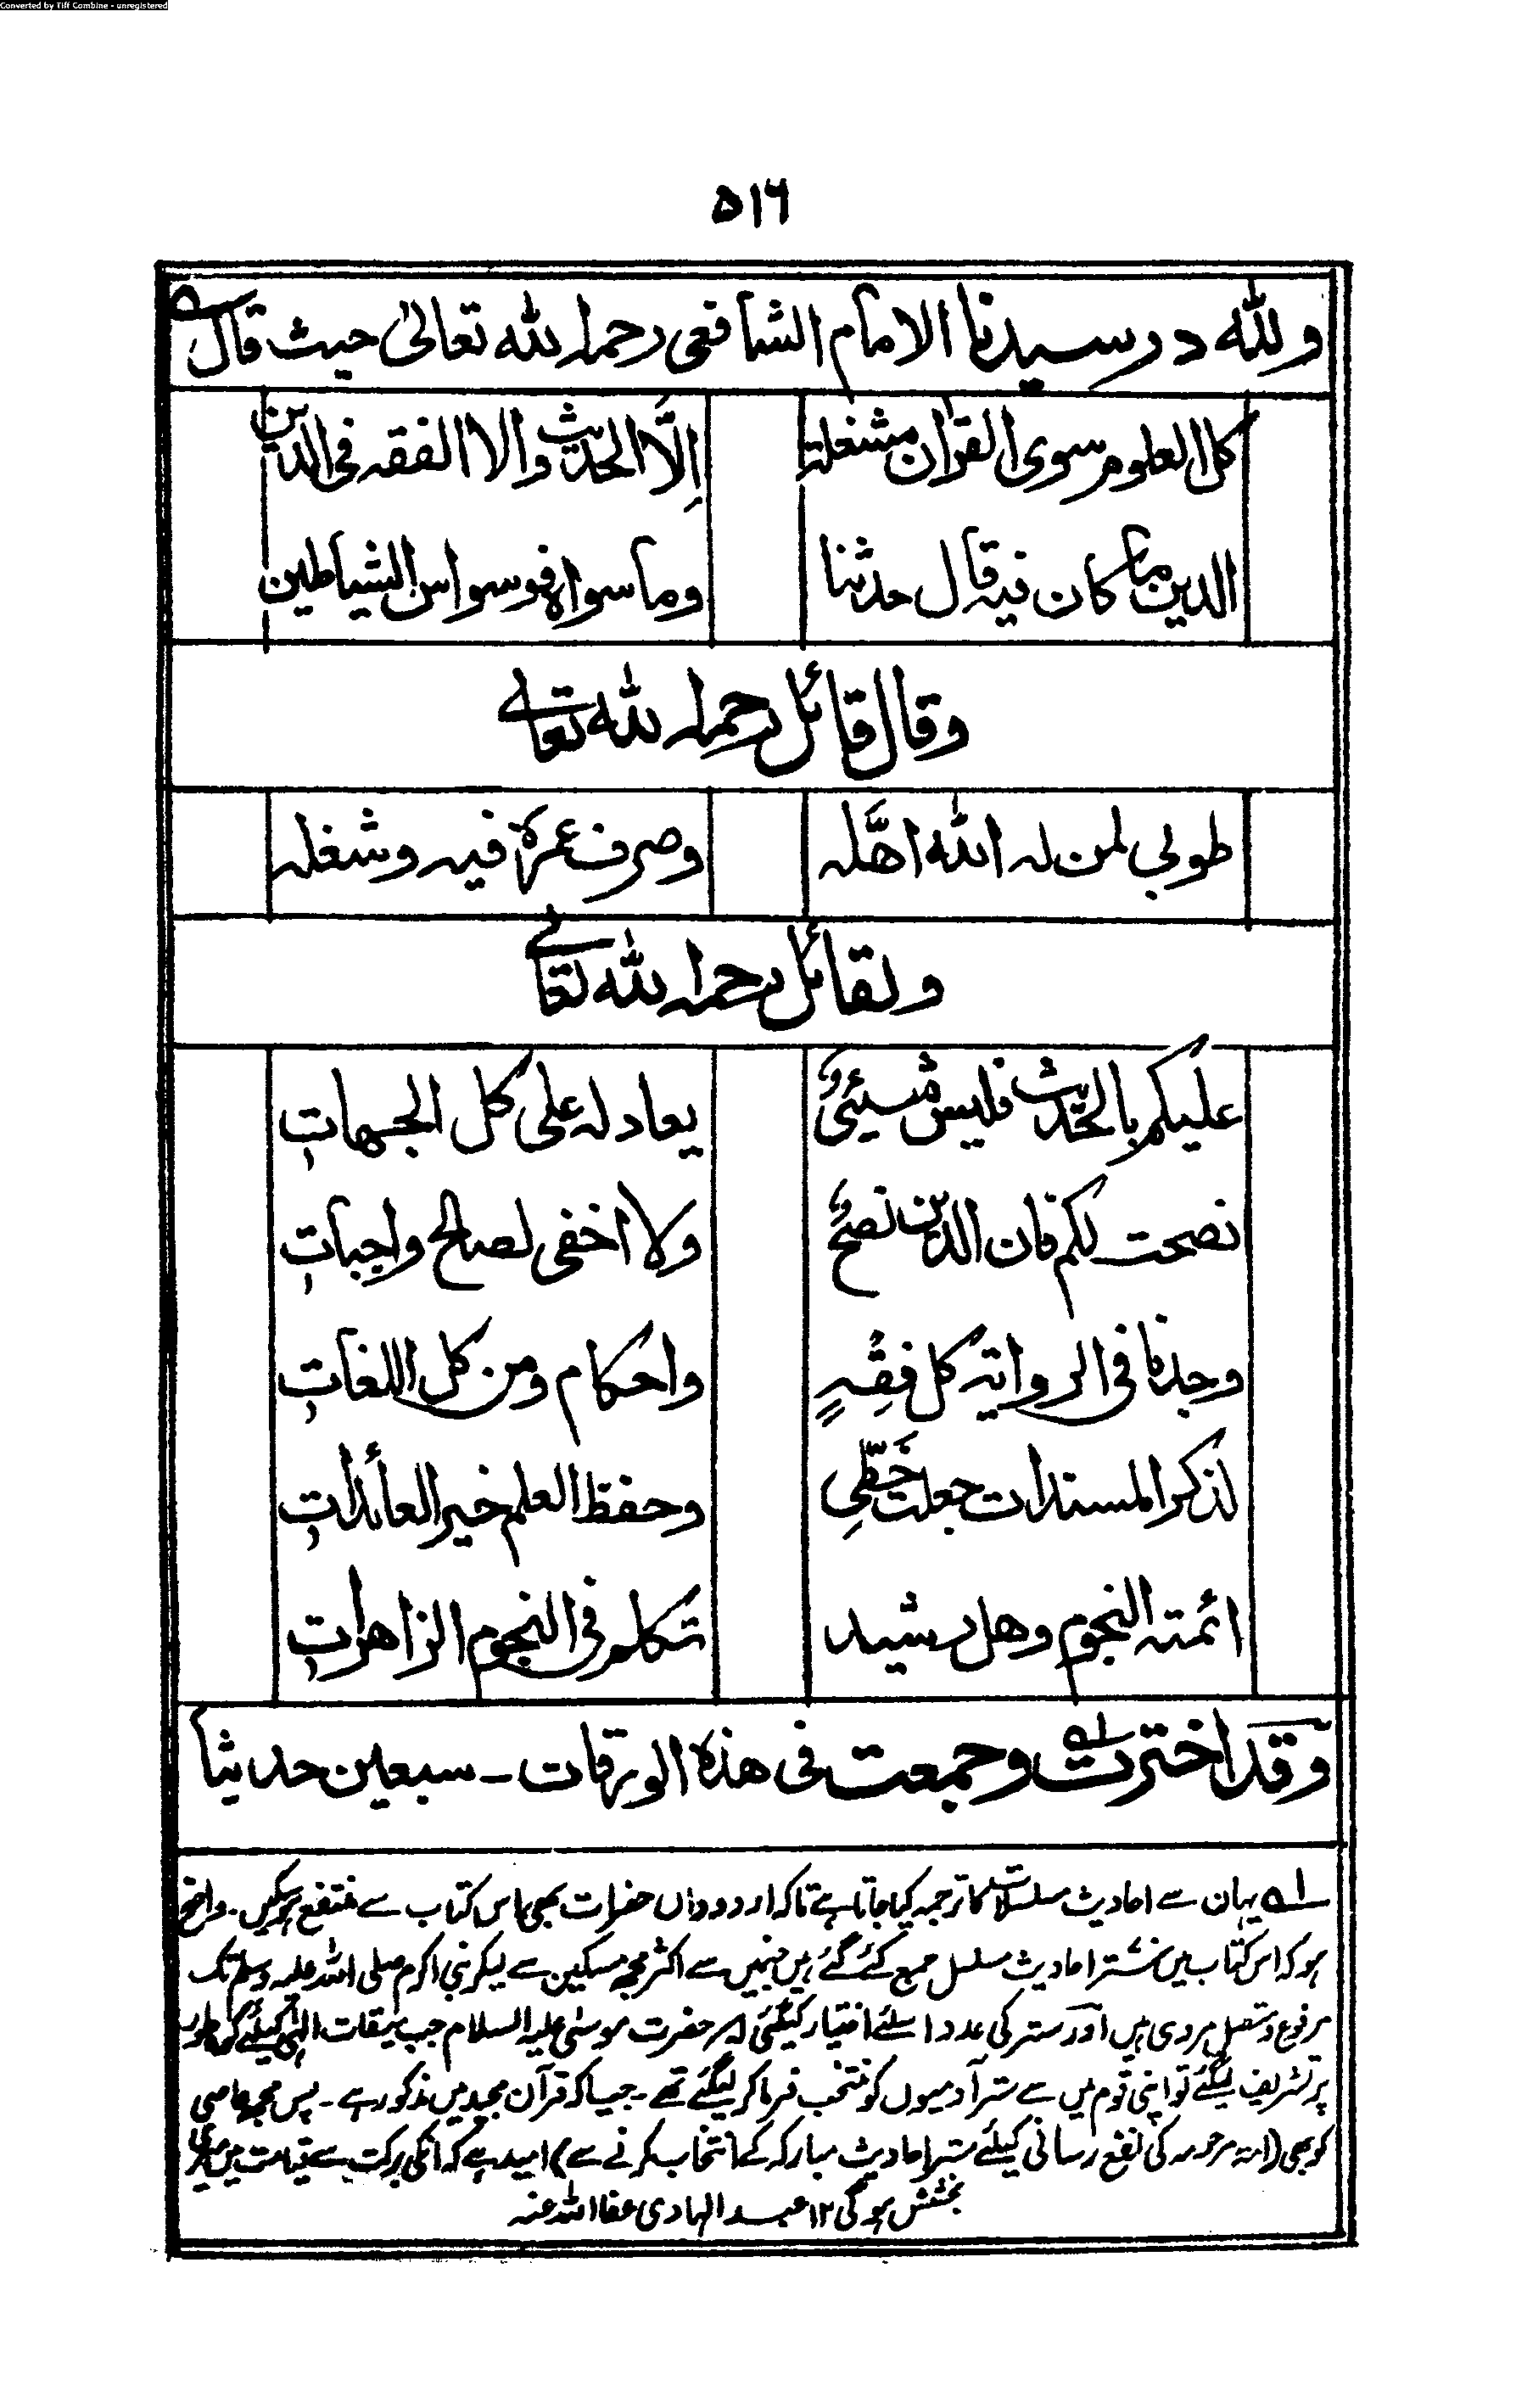 Converted by Tiff Combine - unregistered
۵۱۶
وللّٰه در سیدنا الامام الشافعی رحمه اللّٰه تعالیٰ حیث قال
کل العلوم سوی القرآن مشغلة اِلَّا الحدیث والا الفقه فی الدین
الدین ما کان فیه قال حدثنا وما سواه فوسواس الشیاطین
وقال قائل رحمه اللّٰه تعالے
طوبی لمن له اللّٰه اهَّله وصرف عمره فیه وشغله
ولقائل رحمه اللّٰه تعالے
علیکم بالحدیث فلیس شیئیٌ یعادله علی کل الجهاتِ
نصحت لکم فان الدین نصحٌ ولا اخفی لصالح واجباتِ
وجدنا فی الروایة کل فِقْهٍ واحکام ومن کل اللغاتِ
لذکر المسندات جعلت حَظِّی وحفظ العلم خیر العائداتِ
ائمته النجوم وهل رشید تکلم فی النجوم الزاهراتِ
وقد اخترت وجمعت فی هذه الورقات - سبعین حدیثا
۱؎ یہان سے احادیث مسلسلات کا ترجمہ کیا جاتا ہے تاکہ اردو داں حضرات بھی اس کتاب سے منتفع ہوسکیں - واضح
ہو کہ اس کتاب میں ستر احادیث مسلسل جمع کئے گئے ہیں جنمیں سے اکثر مجھ مسکین سے لیکر نبی اکرم صلی اللہ علیہ وسلم تک
مرفوع و متصل مروی ہیں اور ستر کی عدد اسلئے اختیار کیگئی کہ حضرت موسٰی علیہ السلام جب میقات الٰہی کیلئے کوہ طور
پر تشریف لیگئے تو اپنی قوم میں سے ستر آدمیوں کو منتخب فرما کر لیگئے تھے - جیسا کہ قرآن مجید میں مذکور ہے - پس مجھ عاصی
کو بھی (امۃ مرحومہ کی نفع رسانی کیلئے ستر احادیث مبارکہ کے انتخاب کرنے سے) امید ہے کہ انکی برکت سے قیامت میں میری
بخشش ہوگی ۱۲ عبد الهادی عفا اللہ عنہ